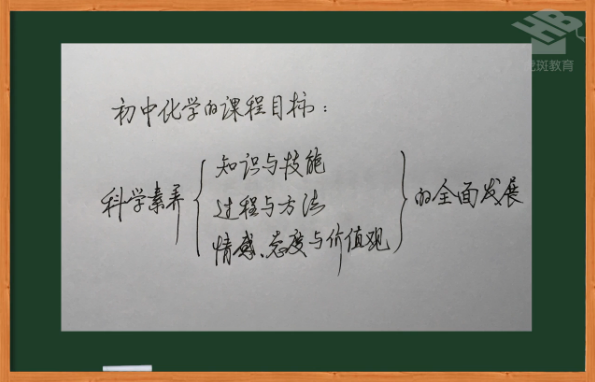 虎斑教育
初中化学的课程目标：
科学素养{知识与技能
过程与方法
情感、态度与价值观}的全面发展